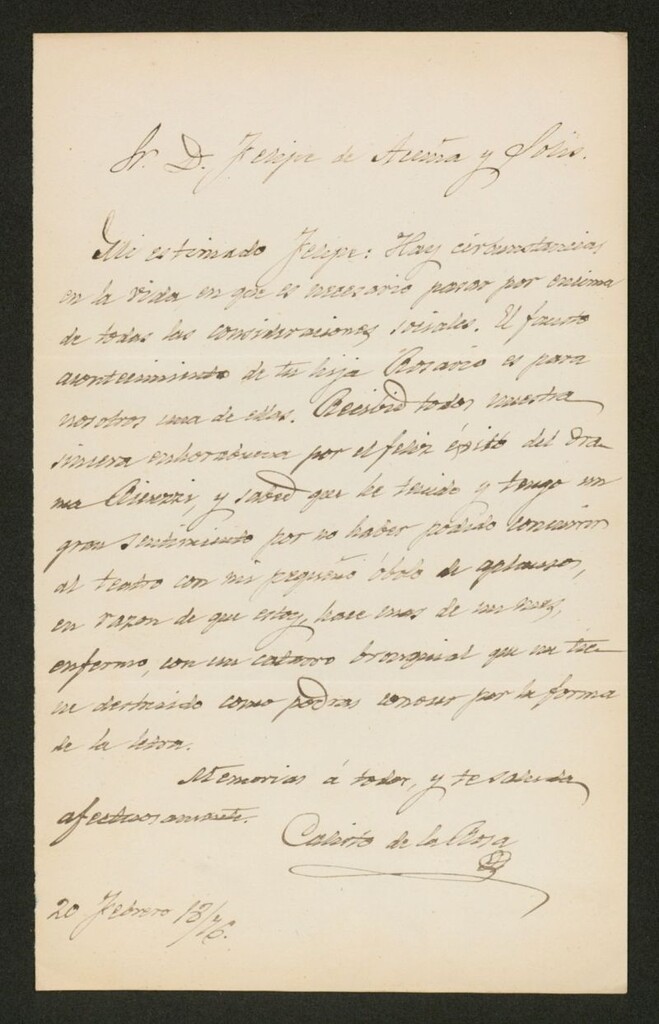 Sr. D. Felipe de Acuña y Solis.
Mi estimado Felipe: Hay circunstancias
en la vida, en que es necesario pasar por encima
de todas las consideraciones sociales. El fausto
acontecimiento de tu hija Rosario es para
nosotros una de ellas. Recibid todos nuestra
sincera enhorabuena por el feliz éxito del dra-
ma Rienzzi, y sabed que he tenido y tengo un
gran sentimiento por no haber podido concurrir
al teatro con mi pequeño óbolo de aplausos,
en razon de que estoy, hace mas de un mes,
enfermo, con un catarro bronquial que me tie-
ne destruido como podras conocer por la forma
de la letra.
Memorias á todos, y te saluda
afectuosamente.
Calisto de la Rosa
20 Febrero 18/76.